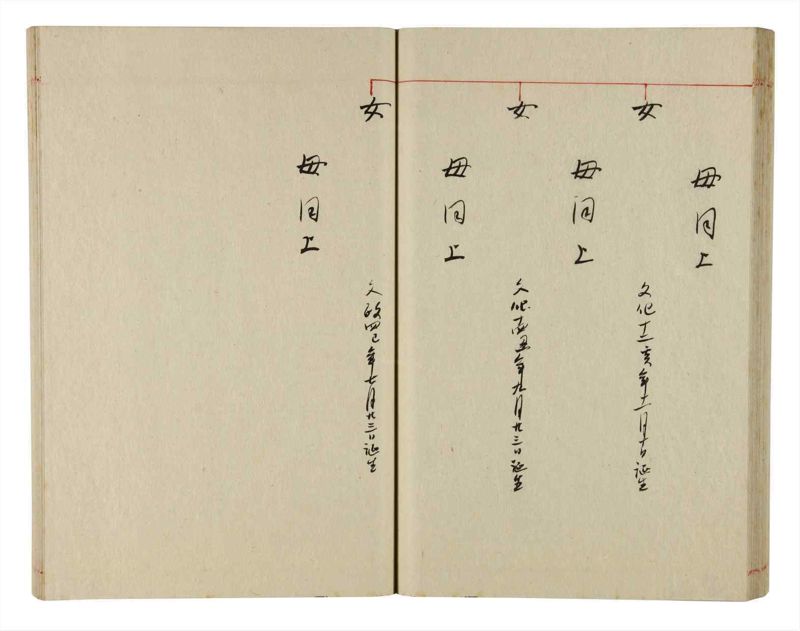 母同上
女
文化十二亥年十一月十日誕生
母同上
女
文化十四丑年九月廿三日誕生
母同上
女
文政四巳年七月廿三日誕生
母同上